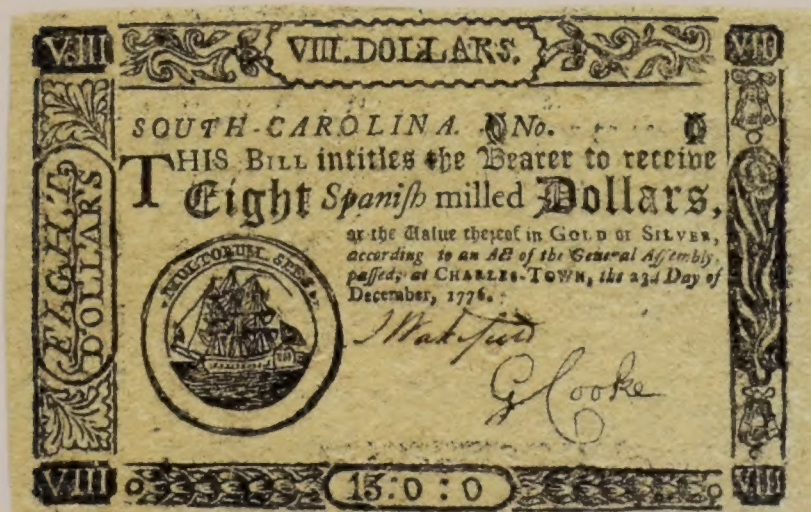 VIII VIII.DOLLARS. VIII
SOUTH-CAROLINA. No.
THIS BILL intitles the Bearer to receive
Eight Spaniſh milled Dollars,
or the Value thereof in GOLD or SILVER,
according to an Act of the General Aſſembly,
paſſed, at CHARLES-TOWN, the 23d Day of
December, 1776.
EIGHT
DOLLARS
MULTORUM SPES
J Wakefield
G Cooke
VIII 13:0:0 VIII